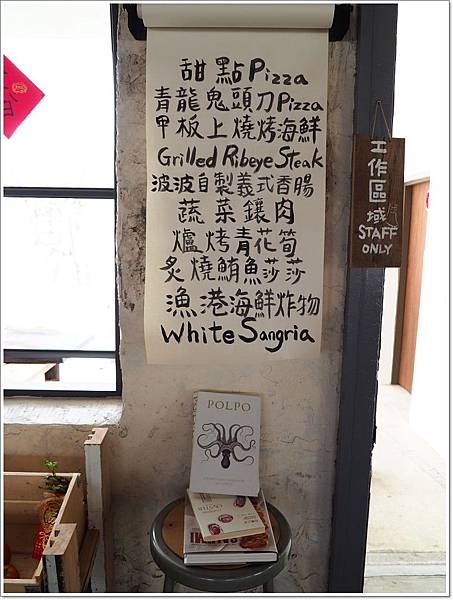 甜點Pizza
青龍鬼頭刀Pizza
甲板上燒烤海鮮
Grilled Ribeye Steak
波波自製義式香腸
蔬菜鑲肉
爐烤青花筍
炙燒鮪魚莎莎
漁港海鮮炸物
White Sangria
工作區域
STAFF
ONLY
POLPO